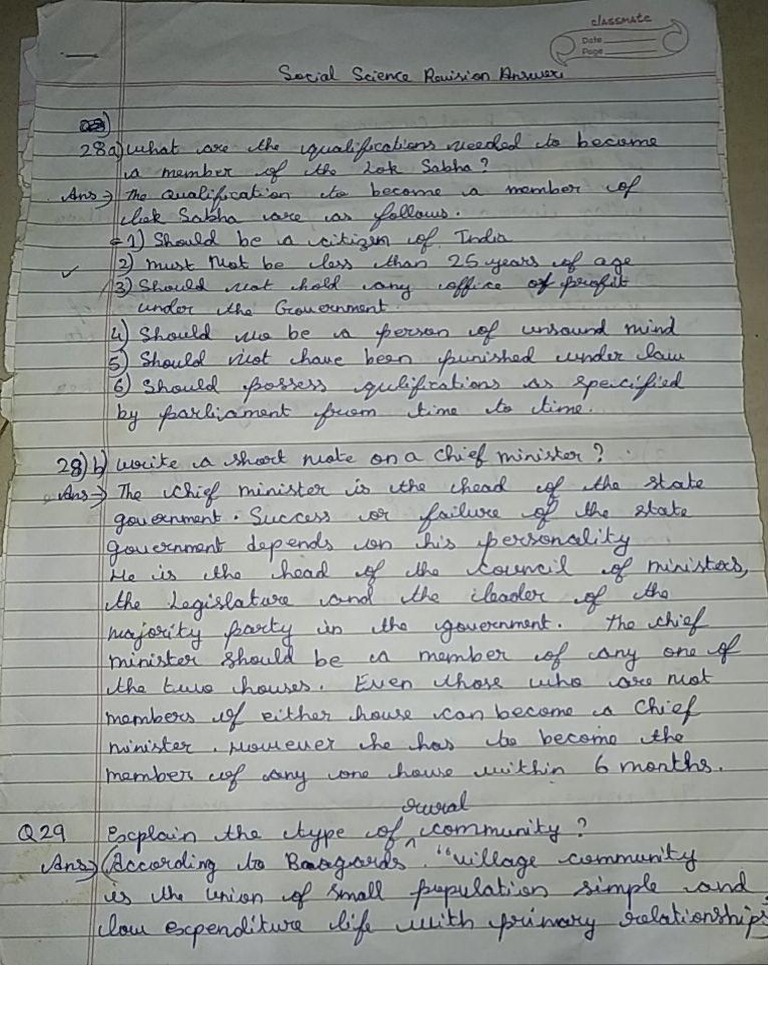 classmate
Date
Page
Social Science Revision Answers
28a) What are the qualifications needed to become
a member of the Lok Sabha?
Ans → The qualification to become a member of
Lok Sabha are as follows.
1) Should be a citizen of India
2) must not be less than 25 years of age
3) Should not hold any office of profit
under the Government.
4) Should no be a person of unsound mind
5) Should not have been punished under law
6) Should possess qulifications as specified
by parliament from time to time.
28) b) Write a short note on a Chief minister?
Ans → The chief minister is the head of the state
government. Success or failure of the state
government depends on his personality
He is the head of the council of ministers,
the Legislature and the leader of the
majority party in the government. The chief
minister should be a member of any one of
the two houses. Even those who are not
members of either house can become a Chief
minister. However he has to become the
member of any one house within 6 months.
Q29 Explain the type of rural community?
Ans → According to "village community
is the union of small population simple and
low expenditure life with primary relationships